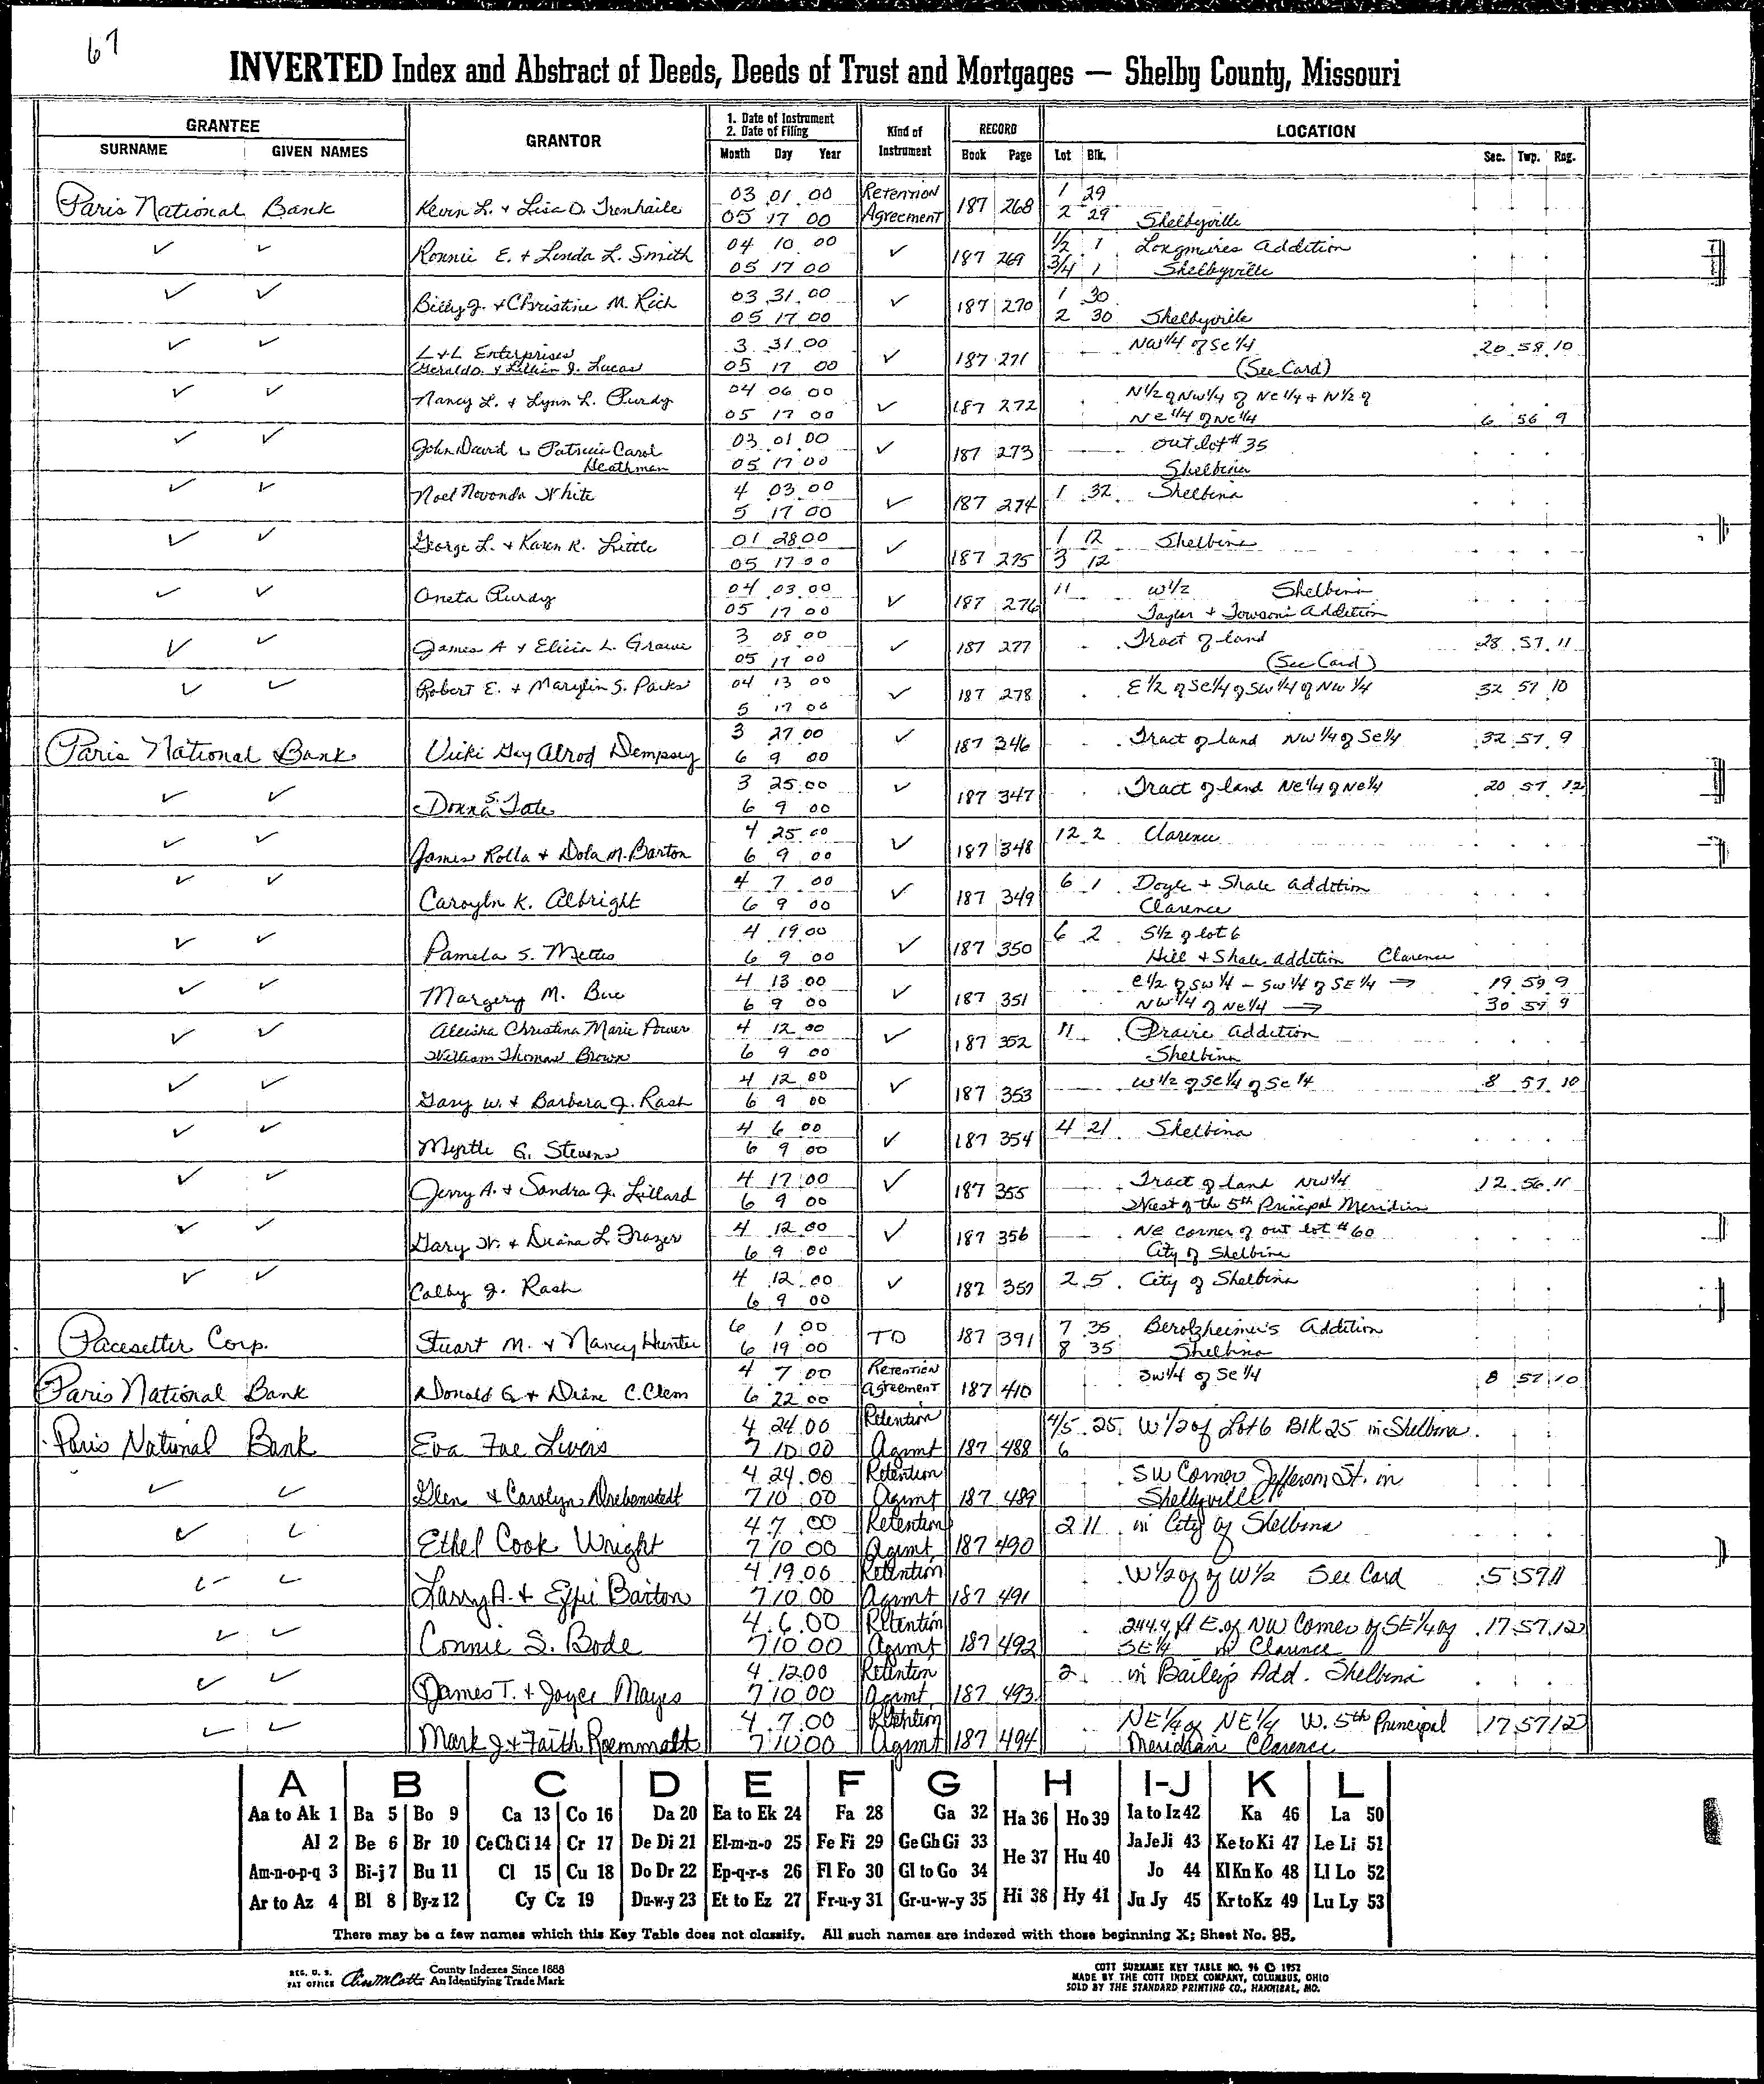 67
INVERTED Index and Abstract of Deeds, Deeds of Trust and Mortgages — Shelby County, Missouri
GRANTEE
SURNAME GIVEN NAMES
GRANTOR
1. Date of Instrument
2. Date of Filing
Month Day Year
Kind of
Instrument
RECORD
Book Page
LOCATION
Lot Blk. Sec. Twp. Rng.
Paris National Bank Kevin L. & Lisa D. Trenhaile 03 01 00 Retention 187 268 1 29
05 17 00 Agreement 2 29 Shelbyville
✓ ✓ Ronnie E. & Linda L. Smith 04 10 00 ✓ 187 269 1/2 1 Longmires Addition
05 17 00 3/4 1 Shelbyville
✓ ✓ Billy J. & Christine M. Rich 03 31 00 ✓ 187 270 1 30
05 17 00 2 30 Shelbyville
✓ ✓ L & L Enterprises 3 31 00 ✓ 187 271 NW 1/4 of SE 1/4 20 58 10
Gerald D. & Lillian J. Lucas 05 17 00 (See Card)
✓ ✓ Nancy L. & Lynn L. Purdy 04 06 00 ✓ 187 272 N 1/2 of NW 1/4 of NE 1/4 + N 1/2 of
05 17 00 NE 1/4 of NE 1/4 6 56 9
✓ ✓ John David & Patricia Carol 03 01 00 ✓ 187 273 out lot # 35
Heathman 05 17 00 Shelbina
✓ ✓ Noel Nevonda White 4 03 00 ✓ 187 274 1 32 Shelbina
5 17 00
✓ ✓ George L. & Karen R. Little 01 28 00 ✓ 187 275 1 12 Shelbina
05 17 00 3 12
✓ ✓ Oneta Purdy 04 03 00 ✓ 187 276 11 W 1/2 Shelbina
05 17 00 Taylor & Towson's Addition
✓ ✓ James A & Elicia L. 3 08 00 ✓ 187 277 Tract of land 28 57 11
05 17 00 (See Card)
✓ ✓ Robert E. & Marylin S. Parks 04 13 00 ✓ 187 278 E 1/2 of SE 1/4 of SW 1/4 of NW 1/4 32 57 10
5 17 00
Paris National Bank Vicki Gay Alrod Dempsey 3 27 00 ✓ 187 346 Tract of land NW 1/4 of SE 1/4 32 57 9
6 9 00
✓ ✓ Donna S. Tate 3 25 00 ✓ 187 347 Tract of land NE 1/4 of NE 1/4 20 57 12
6 9 00
✓ ✓ James Rolla & Dola M. Barton 4 25 00 ✓ 187 348 12 2 Clarence
6 9 00
✓ ✓ Caroyln K. Albright 4 7 00 ✓ 187 349 6 1 Doyle & Shale addition
6 9 00 Clarence
✓ ✓ Pamela S. 4 19 00 ✓ 187 350 6 2 S 1/2 of lot 6
6 9 00 Hill & Shale addition Clarence
✓ ✓ Margery M. 4 13 00 ✓ 187 351 E 1/2 of SW 1/4 - SW 1/4 of SE 1/4 → 19 59 9
6 9 00 NW 1/4 of NE 1/4 → 30 59 9
✓ ✓ Christina Marie Power 4 12 00 ✓ 187 352 11 Prairie addition
William Thomas Brown 6 9 00 Shelbina
✓ ✓ Gary W. & Barbara J. Rash 4 12 00 ✓ 187 353 W 1/2 of SE 1/4 of SE 1/4 8 57 10
6 9 00
✓ ✓ Myrtle G. Stevens 4 6 00 ✓ 187 354 4 21 Shelbina
6 9 00
✓ ✓ Jerry A. & Sandra J. Lillard 4 17 00 ✓ 187 355 Tract of land NW 1/4 12 56 11
6 9 00 West of the 5th Principal Meridian
✓ ✓ Gary W. & Diana L Frazer 4 12 00 ✓ 187 356 NE corner of out lot # 60
6 9 00 City of Shelbina
✓ ✓ Colby J. Rash 4 12 00 ✓ 187 359 2 5 City of Shelbina
6 9 00
Pacesetter Corp. Stuart M. & Nancy Hunter 6 1 00 TD 187 391 7 35 Berolzheimer's Addition
6 19 00 8 35 Shelbina
Paris National Bank Donald G. & Diane C. Clem 4 7 00 Retention 187 410 SW 1/4 of SE 1/4 8 57 10
6 22 00 Agreement
Paris National Bank Eva Fae Livers 4 24 00 Retention 4/5 25 W 1/2 of Lot 6 Blk 25 in Shelbina
7 10 00 Agmt 187 488 6
✓ ✓ Glen & Carolyn Drebenstedt 4 24 00 Retention SW Corner Jefferson St. in
7 10 00 Agmt 187 489 Shelbyville
✓ ✓ Ethel Cook Wright 4 7 00 Retention 2 11 in City of Shelbina
7 10 00 Agmt 187 490
✓ ✓ Larry A. & Effie Barton 4 19 00 Retention W 1/2 of of W 1/2 See Card 5 57 11
7 10 00 Agmt 187 491
✓ ✓ Connie S. Bode 4 6 00 Retention 244.4 ft E. of NW Corner of SE 1/4 of 17 57 12
7 10 00 Agmt 187 492 SE 1/4 in Clarence
✓ ✓ James T. & Joyce Mayes 4 12 00 Retention 2 in Bailey's Add. Shelbina
7 10 00 Agmt 187 493
✓ ✓ Mark J. & Faith Roemmelt 4 7 00 Retention NE 1/4 of NE 1/4 W. 5th Principal 17 57 12
7 10 00 Agmt 187 494 Meridian Clarence
A B C D E F G H I-J K L
Aa to Ak 1 Ba 5 Bo 9 Ca 13 Co 16 Da 20 Ea to Ek 24 Fa 28 Ga 32 Ha 36 Ho 39 Ia to Iz 42 Ka 46 La 50
Al 2 Be 6 Br 10 Ce Ch Ci 14 Cr 17 De Di 21 El-m-n-o 25 Fe Fi 29 Ge Gh Gi 33 He 37 Hu 40 Ja Je Ji 43 Ke to Ki 47 Le Li 51
Am-n-o-p-q 3 Bi-j 7 Bu 11 Cl 15 Cu 18 Do Dr 22 Ep-q-r-s 26 Fl Fo 30 Gl to Go 34 Jo 44 Kl Kn Ko 48 Ll Lo 52
Ar to Az 4 Bl 8 By-z 12 Cy Cz 19 Du-w-y 23 Et to Ez 27 Fr-u-y 31 Gr-u-w-y 35 Hi 38 Hy 41 Ju Jy 45 Kr to Kz 49 Lu Ly 53
There may be a few names which this Key Table does not classify. All such names are indexed with those beginning X; Sheet No. 95.
REG. U. S.
PAT OFFICE
County Indexes Since 1888
An Identifying Trade Mark
COTT SURNAME KEY TABLE NO. 96 © 1952
MADE BY THE COTT INDEX COMPANY, COLUMBUS, OHIO
SOLD BY THE STANDARD PRINTING CO., HANNIBAL, MO.